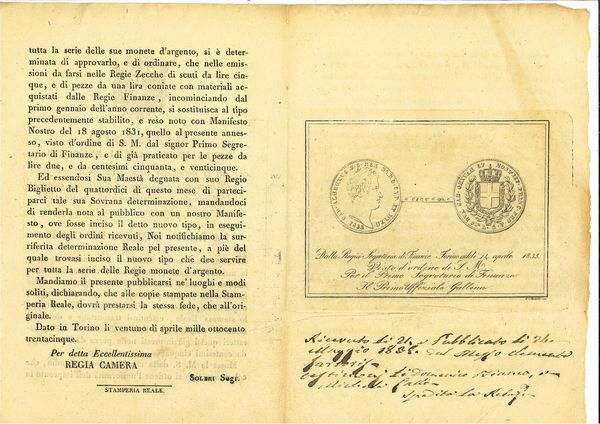 tutta la serie delle sue monete d'argento, si è deter-
minata di approvarlo, e di ordinare, che nelle emis-
sioni da farsi nelle Regie Zecche di scuti da lire cin-
que, e di pezze da una lira coniate con materiali ac-
quistati dalle Regie Finanze, incominciando dal
primo gennaio dell'anno corrente, si sostituisca al tipo
precedentemente stabilito, e reso noto con Manifesto
Nostro del 18 agosto 1831, quello al presente annes-
so, visto d'ordine di S. M. dal signor Primo Segre-
tario di Finanze, e di già praticato per le pezze da
lire due, e da centesimi cinquanta, e venticinque.
Ed essendosi Sua Maestà degnata con suo Regio
Biglietto del quattordici di questo mese di parteci-
parci tale sua Sovrana determinazione, mandandoci
di renderla nota al pubblico con un nostro Manife-
sto, ove fosse inciso il detto nuovo tipo, in esegui-
mento degli ordini ricevuti, Noi notifichiamo la sur-
riferita determinazione Reale pel presente, a piè del
quale trovasi inciso il nuovo tipo che dee servire
per tutta la serie delle Regie monete d'argento.
Mandiamo il presente pubblicarsi ne' luoghi e modi
soliti, dichiarando, che alle copie stampate nella Stam-
peria Reale, dovrà prestarsi la stessa fede, che all'ori-
ginale.
Dato in Torino li ventuno di aprile mille ottocento
trentacinque.
Per detta Eccellentissima
REGIA CAMERA
SOLERI Segr.
STAMPERIA REALE.
Dalla Regia Segreteria di Finanze Torino addì 14 aprile 1835.
Visto d'ordine di S. M.
Per il Primo Segretario di Finanze
Il Primo Uffiziale Gallina
Ricevuto li 21. e Pubblicato li 24.
Maggio 1835. dal Messo
Domenico
Michele
Spedita la